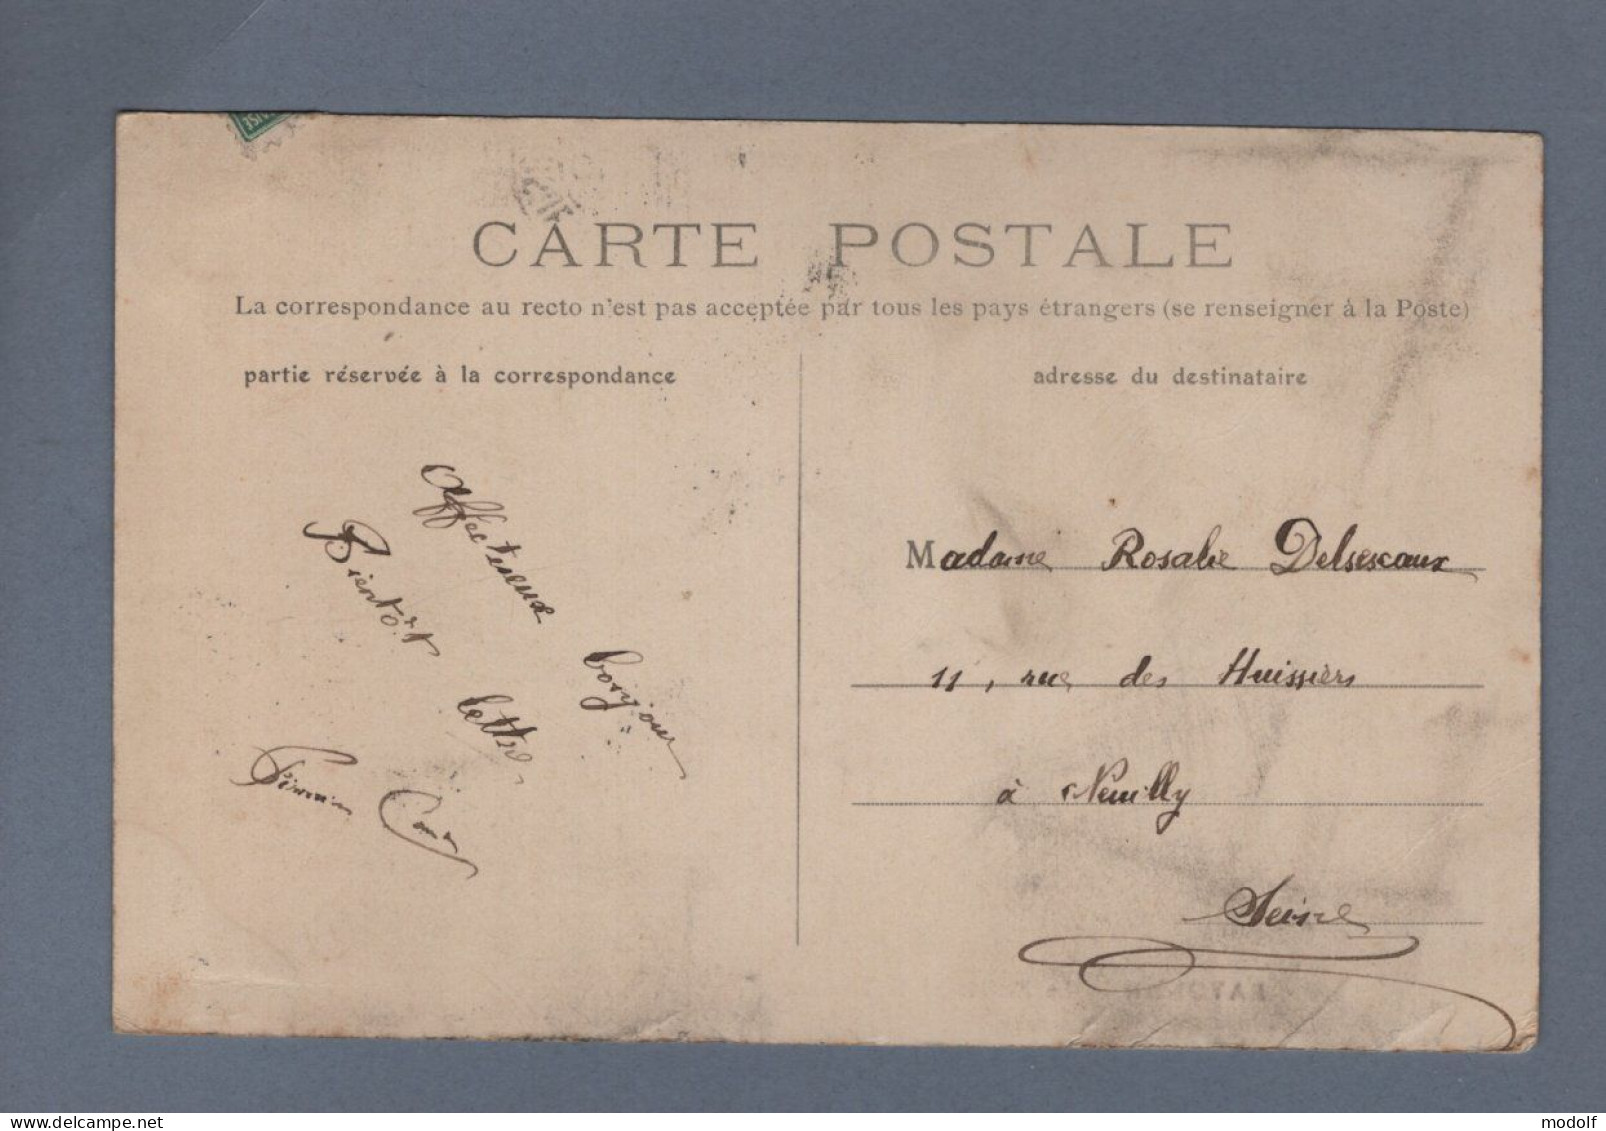 CARTE POSTALE
La correspondance au recto n'est pas acceptée par tous les pays étrangers (se renseigner à la Poste)
partie réservée à la correspondance
adresse du destinataire
Affectueux bonjour
Bientôt lettre
Madame Rosalie
11, rue des Huissiers
à Neuilly
Seine
Delcampe.net
modolf